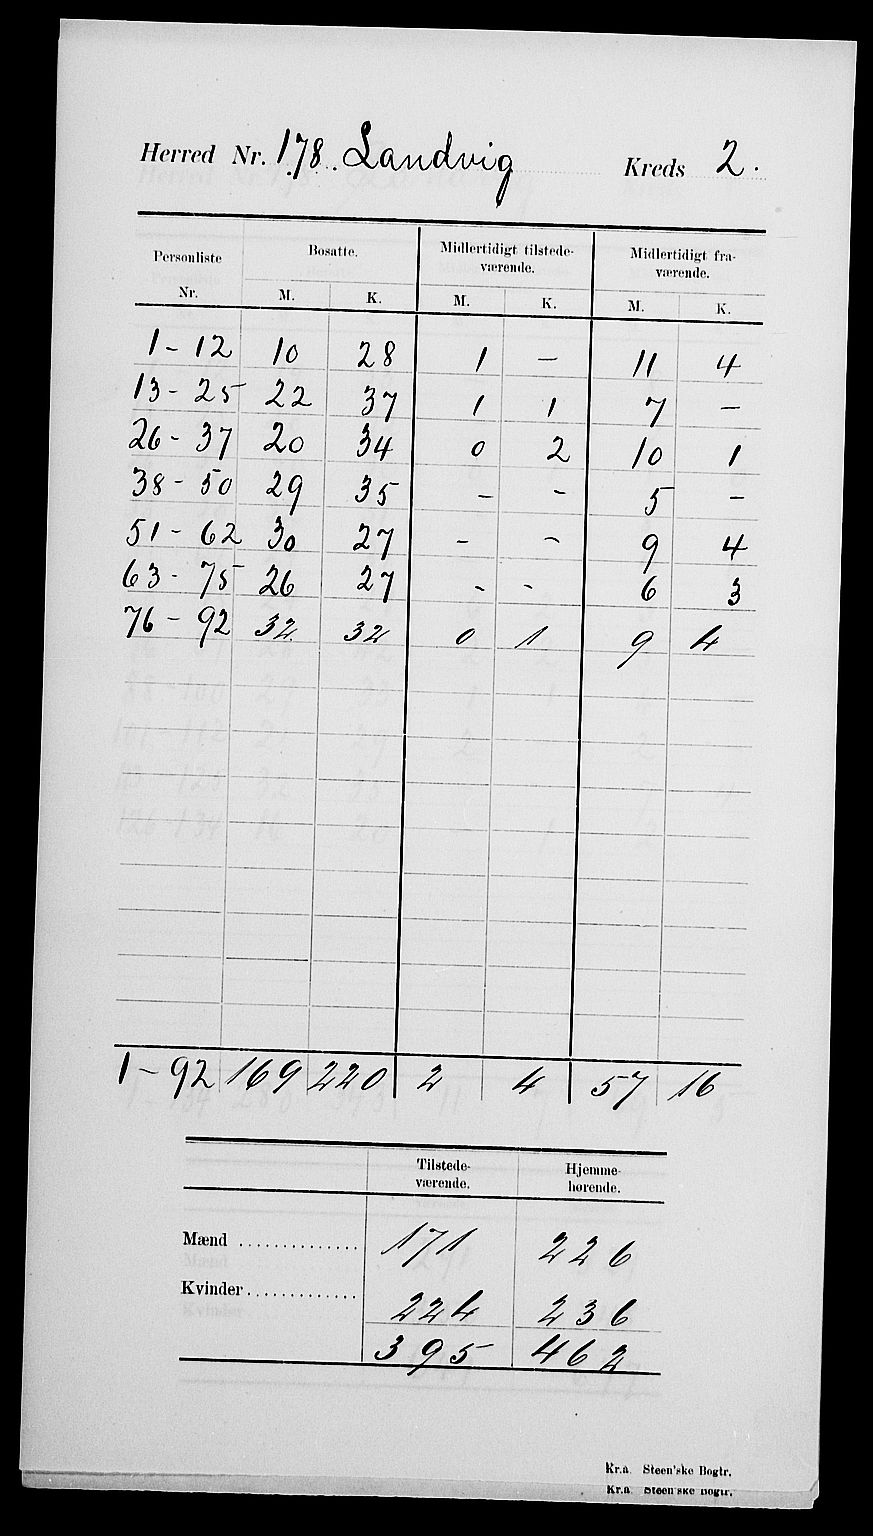 Herred Nr. 178. Landvig Kreds 2.
Personliste Nr. Bosatte. Midlertidigt tilstede-værende. Midlertidigt fra-værende.
M. K. M. K. M. K.
1 - 12 10 28 1 — 11 4
13 - 25 22 37 1 1 7 —
26 - 37 20 34 0 2 10 1
38 - 50 29 35 - - 5 -
51 - 62 30 27 - - 9 4
63 - 75 26 27 - - 6 3
76 - 92 32 32 0 1 9 4
1 - 92 169 220 2 4 57 16
Tilstede-værende. Hjemme-hørende.
Mænd .............. 171 226
Kvinder ............. 224 236
395 462
Kr.a. Steen'ske Bogtr.
Kr.a. Steen'ske Bogtr.